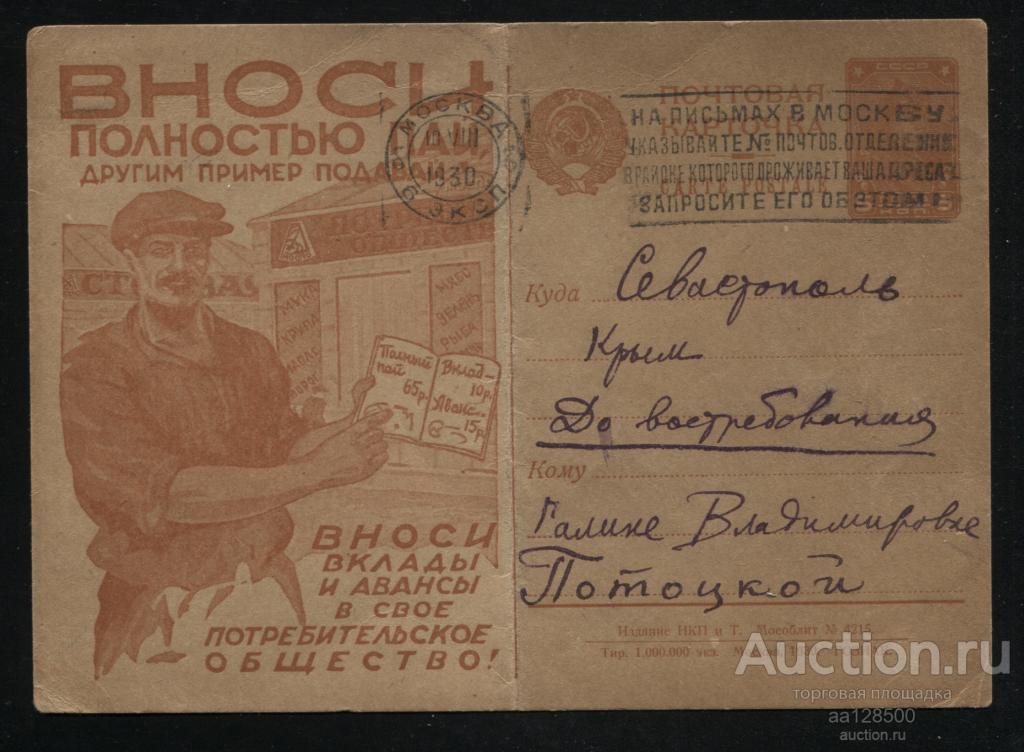 ВНОСИ
ПОЛНОСТЬЮ
ДРУГИМ ПРИМЕР ПОДАВАЙ
МОСКВА
10 VIII
1930
ЭКСП.
ПОЧТОВАЯ
CARTE POSTALE
СССР
НА ПИСЬМАХ В МОСКВУ
УКАЗЫВАЙТЕ № ПОЧТОВ. ОТДЕЛЕНИЯ
В РАЙОНЕ КОТОРОГО ПРОЖИВАЕТ ВАШ АДРЕСАТ
ЗАПРОСИТЕ ЕГО ОБ ЭТОМ
МУКА
КРУПА
МЯСО
ЗЕЛЕНЬ
РЫБА
Полный
пай
65р.
Вклад—
10р.
Аванс..
15р
ВНОСИ
ВКЛАДЫ
И АВАНСЫ
В СВОЕ
ПОТРЕБИТЕЛЬСКОЕ
ОБЩЕСТВО!
Куда Севастополь
Крым
До востребования
Кому
Галине Владимировне
Потоцкой
Издание НКП и Т. Мособлит № 4215
Тир. 1.000.000 экз.
Auction.ru
торговая площадка
aa128500
auction.ru